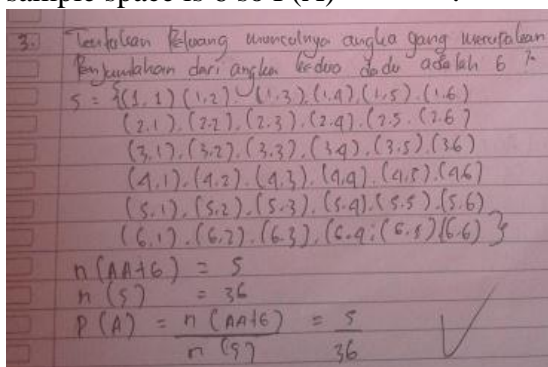 3. Tentukan Peluang munculnya angka yang merupakan
Penjumlahan dari angka kedua dadu adalah 6 ?
S = {(1,1) (1,2). (1.3). (1.4). (1.5). (1.6)
(2.1). (2.2). (2.3). (2.4). (2.5. (2.6)
(3.1). (3.2). (3.3). (3.4). (3.5). (3.6)
(4.1). (4.2). (4.3). (4.4). (4.5). (4.6)
(5.1). (5.2). (5.3). (5.4). (5.5). (5.6)
(6.1). (6.2). (6.3). (6.4; (6.5) (6.6) }
n (AA+6) = 5
n (S) = 36
P (A) = n (AA+6) = 5
n (S) 36